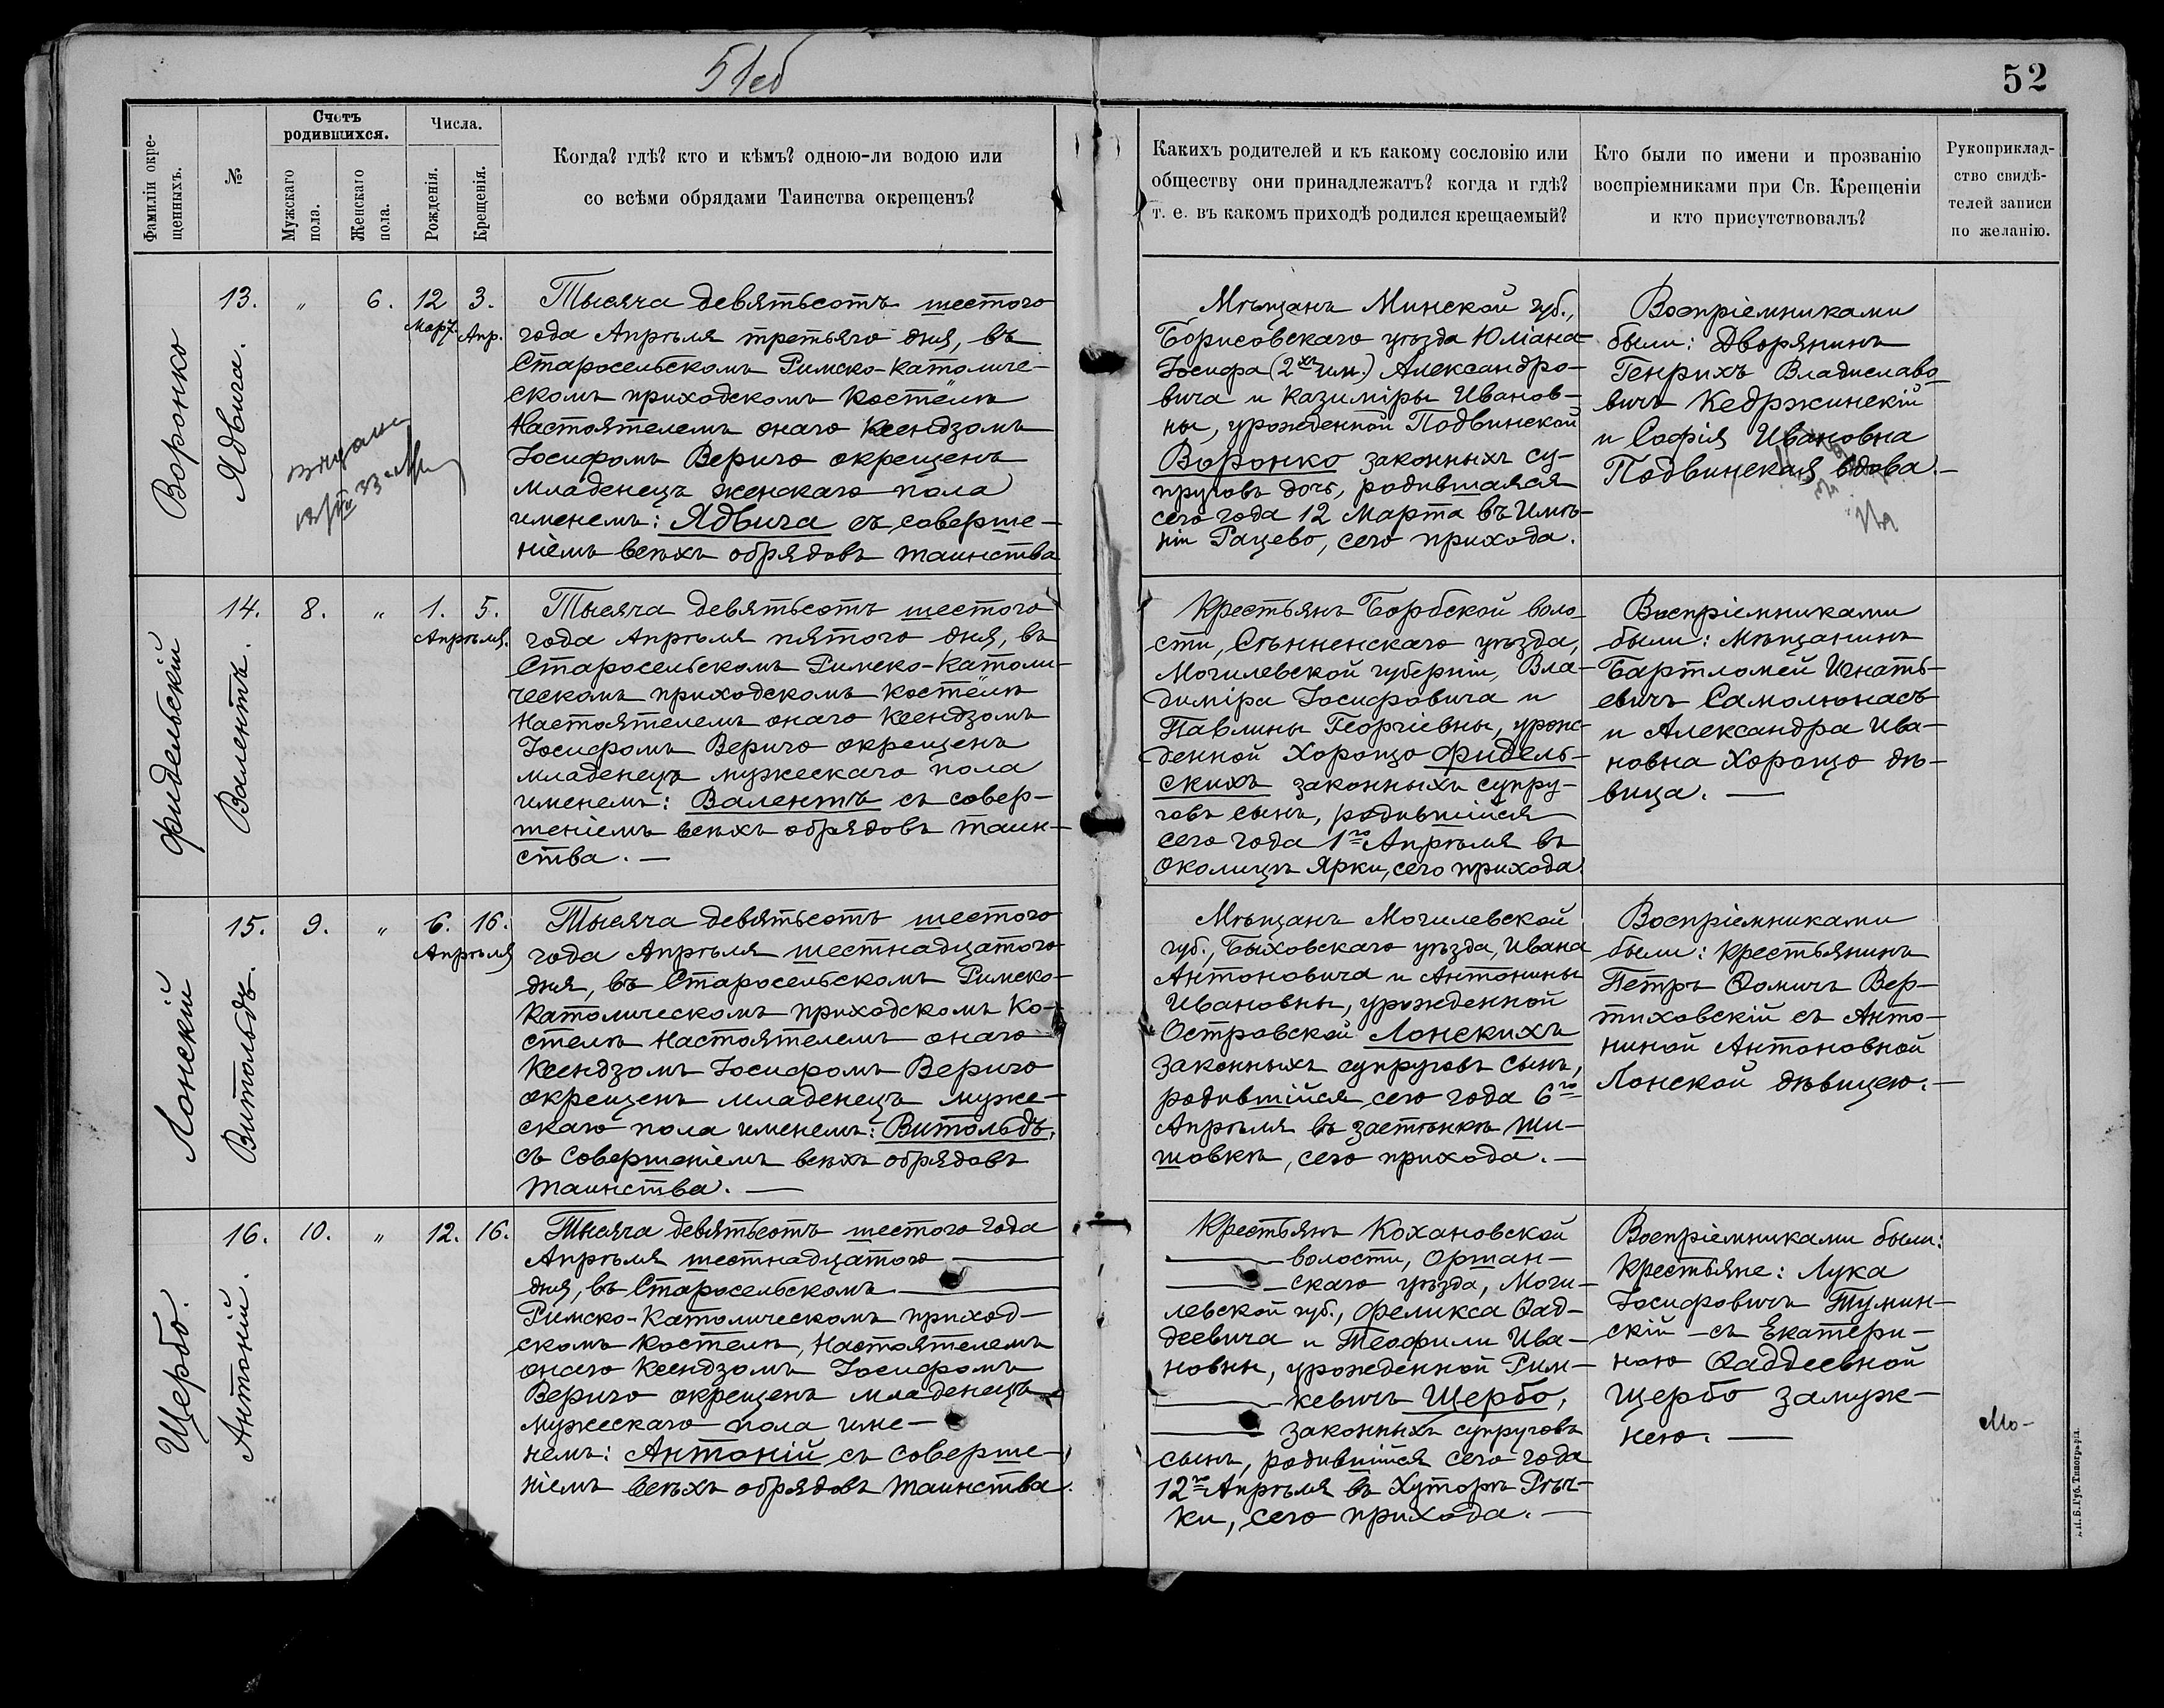 51об
52
Фамиліи окре-
щенныхъ.
№
Счетъ
родившихся.
Мужскаго
пола.
Женскаго
пола.
Числа.
Рожденія.
Крещенія.
Когда? гдѣ? кто и кѣмъ? одною-ли водою или
со всѣми обрядами Таинства окрещенъ?
Какихъ родителей и къ какому сословію или
обществу они принадлежатъ? когда и гдѣ?
т. е. въ какомъ приходѣ родился крещаемый?
Кто были по имени и прозванію
воспріемниками при Св. Крещеніи
и кто присутствовалъ?
Рукоприклад-
ство свидѣ-
телей записи
по желанію.
Воронко
Ядвига.
13.
„
6.
12
Март.
3.
Апр.
Тысяча девятьсотъ шестого
года Апрѣля третьяго дня, въ
Старосельскомъ Римско-католиче-
скомъ приходскомъ костёлѣ
Настоятелемъ онаго Ксендзомъ
Іосифомъ Вериго окрещенъ
младенецъ женскаго пола
именемъ: Ядвига съ соверше-
ніемъ всѣхъ обрядовъ таинства
Мѣщанъ Минской губ.,
Борисовскаго уѣзда Юліана
Іосифа (2хъ им.) Александро-
вича и Казиміры Иванов-
ны, урожденной Подвинской
Воронко законныхъ су-
пруговъ дочь, родившаяся
сего года 12 Марта въ Имѣ-
ніи Рацево, сего прихода.
Воспріемниками
были: Дворянинъ
Генрихъ Владиславо
вичъ Кедржинскій
и Софія Ивановна
Подвинская вдова.—
Фидельскій
Валентъ.
14.
8.
„
1.
5.
Апрѣля.
Тысяча девятьсотъ шестого
года Апрѣля пятого дня, въ
Старосельскомъ Римско-католи-
ческомъ приходскомъ костёлѣ
Настоятелемъ онаго Ксендзомъ
Іосифомъ Вериго окрещенъ
младенецъ мужескаго пола
именемъ: Валентъ съ совер-
шеніемъ всѣхъ обрядовъ таин-
ства. —
Крестьянъ Борбской воло-
сти, Сѣнненскаго уѣзда,
Могилевской губерніи, Вла-
диміра Іосифовича и
Павлины Георгіевны, урож-
денной Хорощо Фидель-
скихъ законныхъ супру-
говъ сынъ, родившійся
сего года 1го Апрѣля въ
околицѣ Ярки, сего прихода.
Воспріемниками
были: Мѣщанинъ
Бартломей Игнать-
евичъ Самолюнасъ
и Александра Ива-
новна Хорощо дѣ-
вица. —
Лонскій
Витольдъ.
15.
9.
„
6.
16.
Апрѣля
Тысяча девятьсотъ шестого
года Апрѣля шестнадцатого
дня, въ Старосельскомъ Римско-
католическомъ приходскомъ Ко-
стелѣ Настоятелемъ онаго
Ксендзомъ Іосифомъ Вериго
окрещенъ младенецъ муже-
скаго пола именемъ: Витольдъ,
съ совершеніемъ всѣхъ обрядовъ
таинства. —
Мѣщанъ Могилевской
губ., Быховскаго уѣзда, Ивана
Антоновича и Антонины
Ивановны, урожденной
Островской Лонскихъ
законныхъ супруговъ сынъ,
родившійся сего года 6го
Апрѣля въ застѣнкѣ Ши-
шовкѣ, сего прихода. —
Воспріемниками
были: Крестьянинъ
Петръ Ѳомичъ Вер-
тиховскій съ Анто-
ниной Антоновной
Лонской дѣвицею. —
Щербо.
Антоній.
16.
10.
„
12.
16.
Тысяча девятьсотъ шестого года
Апрѣля шестнадцатого
дня, въ Старосельскомъ
Римско-Католическомъ приход-
скомъ костелѣ, Настоятелемъ
онаго Ксендзомъ Іосифомъ
Вериго окрещенъ младенецъ
мужескаго пола име-
немъ: Антоній съ соверше-
ніемъ всѣхъ обрядовъ таинства.
Крестьянъ Кохановской
волости, Оршан-
скаго уѣзда, Моги-
левской губ., Феликса Ѳад-
деевича и Теофили Ива-
новны, урожденной Рим-
кевичъ Щербо,
законныхъ супруговъ
сынъ, родившійся сего года
12го Апрѣля въ Хуторѣ Рѣч-
ки, сего прихода. —
Воспріемниками были:
Крестьяне: Лука
Іосифовичъ Тумин-
скій съ Екатери-
ною Ѳаддеевной
Щербо замуж-
нею. —
Мо-